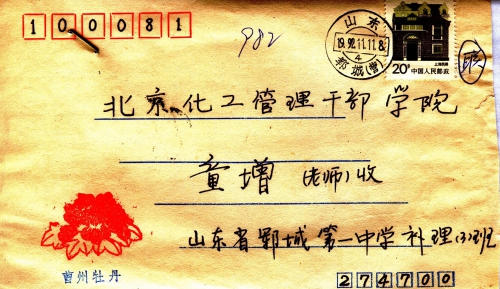 100081
982
山东
19.92.11.11.8
4
郓城(营)
上海民居
20分 中国人民邮政
北京化工管理干部学院
童增(老师)收
山东省郓城第一中学补理(3)班
曹州牡丹
274700